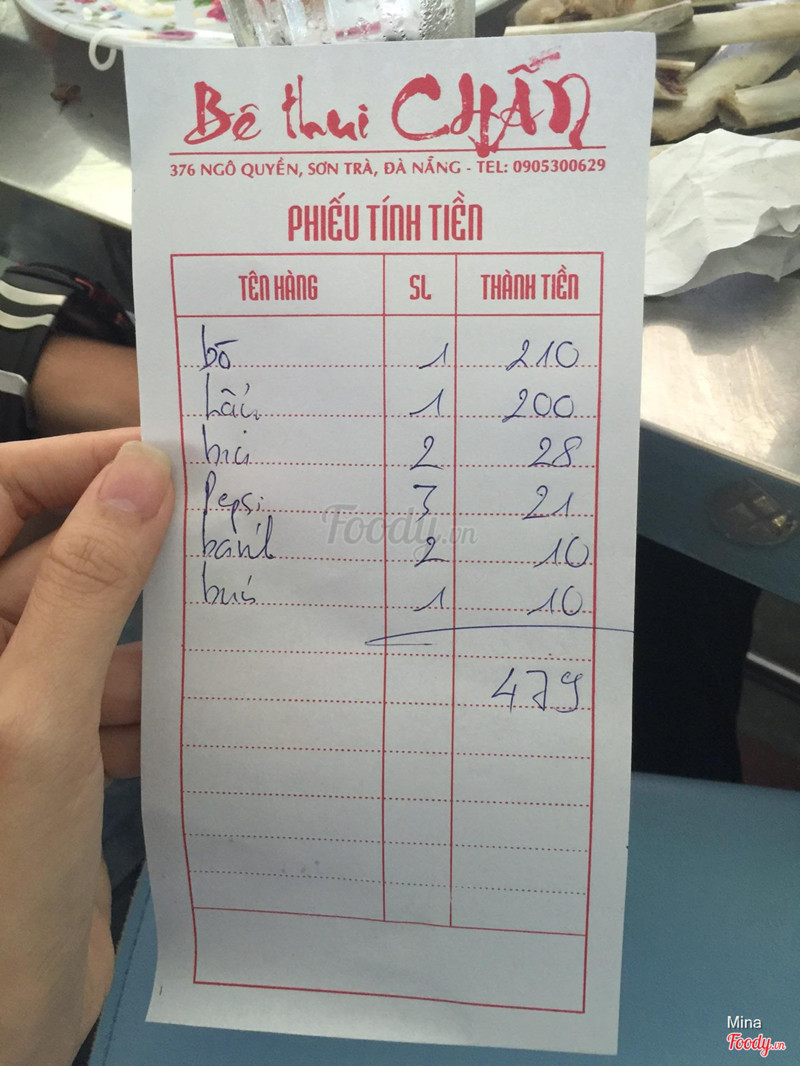 Bê thui CHẤN
376 NGÔ QUYỀN, SƠN TRÀ, ĐÀ NẴNG - TEL: 0905300629
PHIẾU TÍNH TIỀN
TÊN HÀNG SL THÀNH TIỀN
bò 1 210
lẩu 1 200
2 28
Pepsi 3 21
bánh 2 10
bún 1 10
479
Foody.vn
Mina
Foody.vn